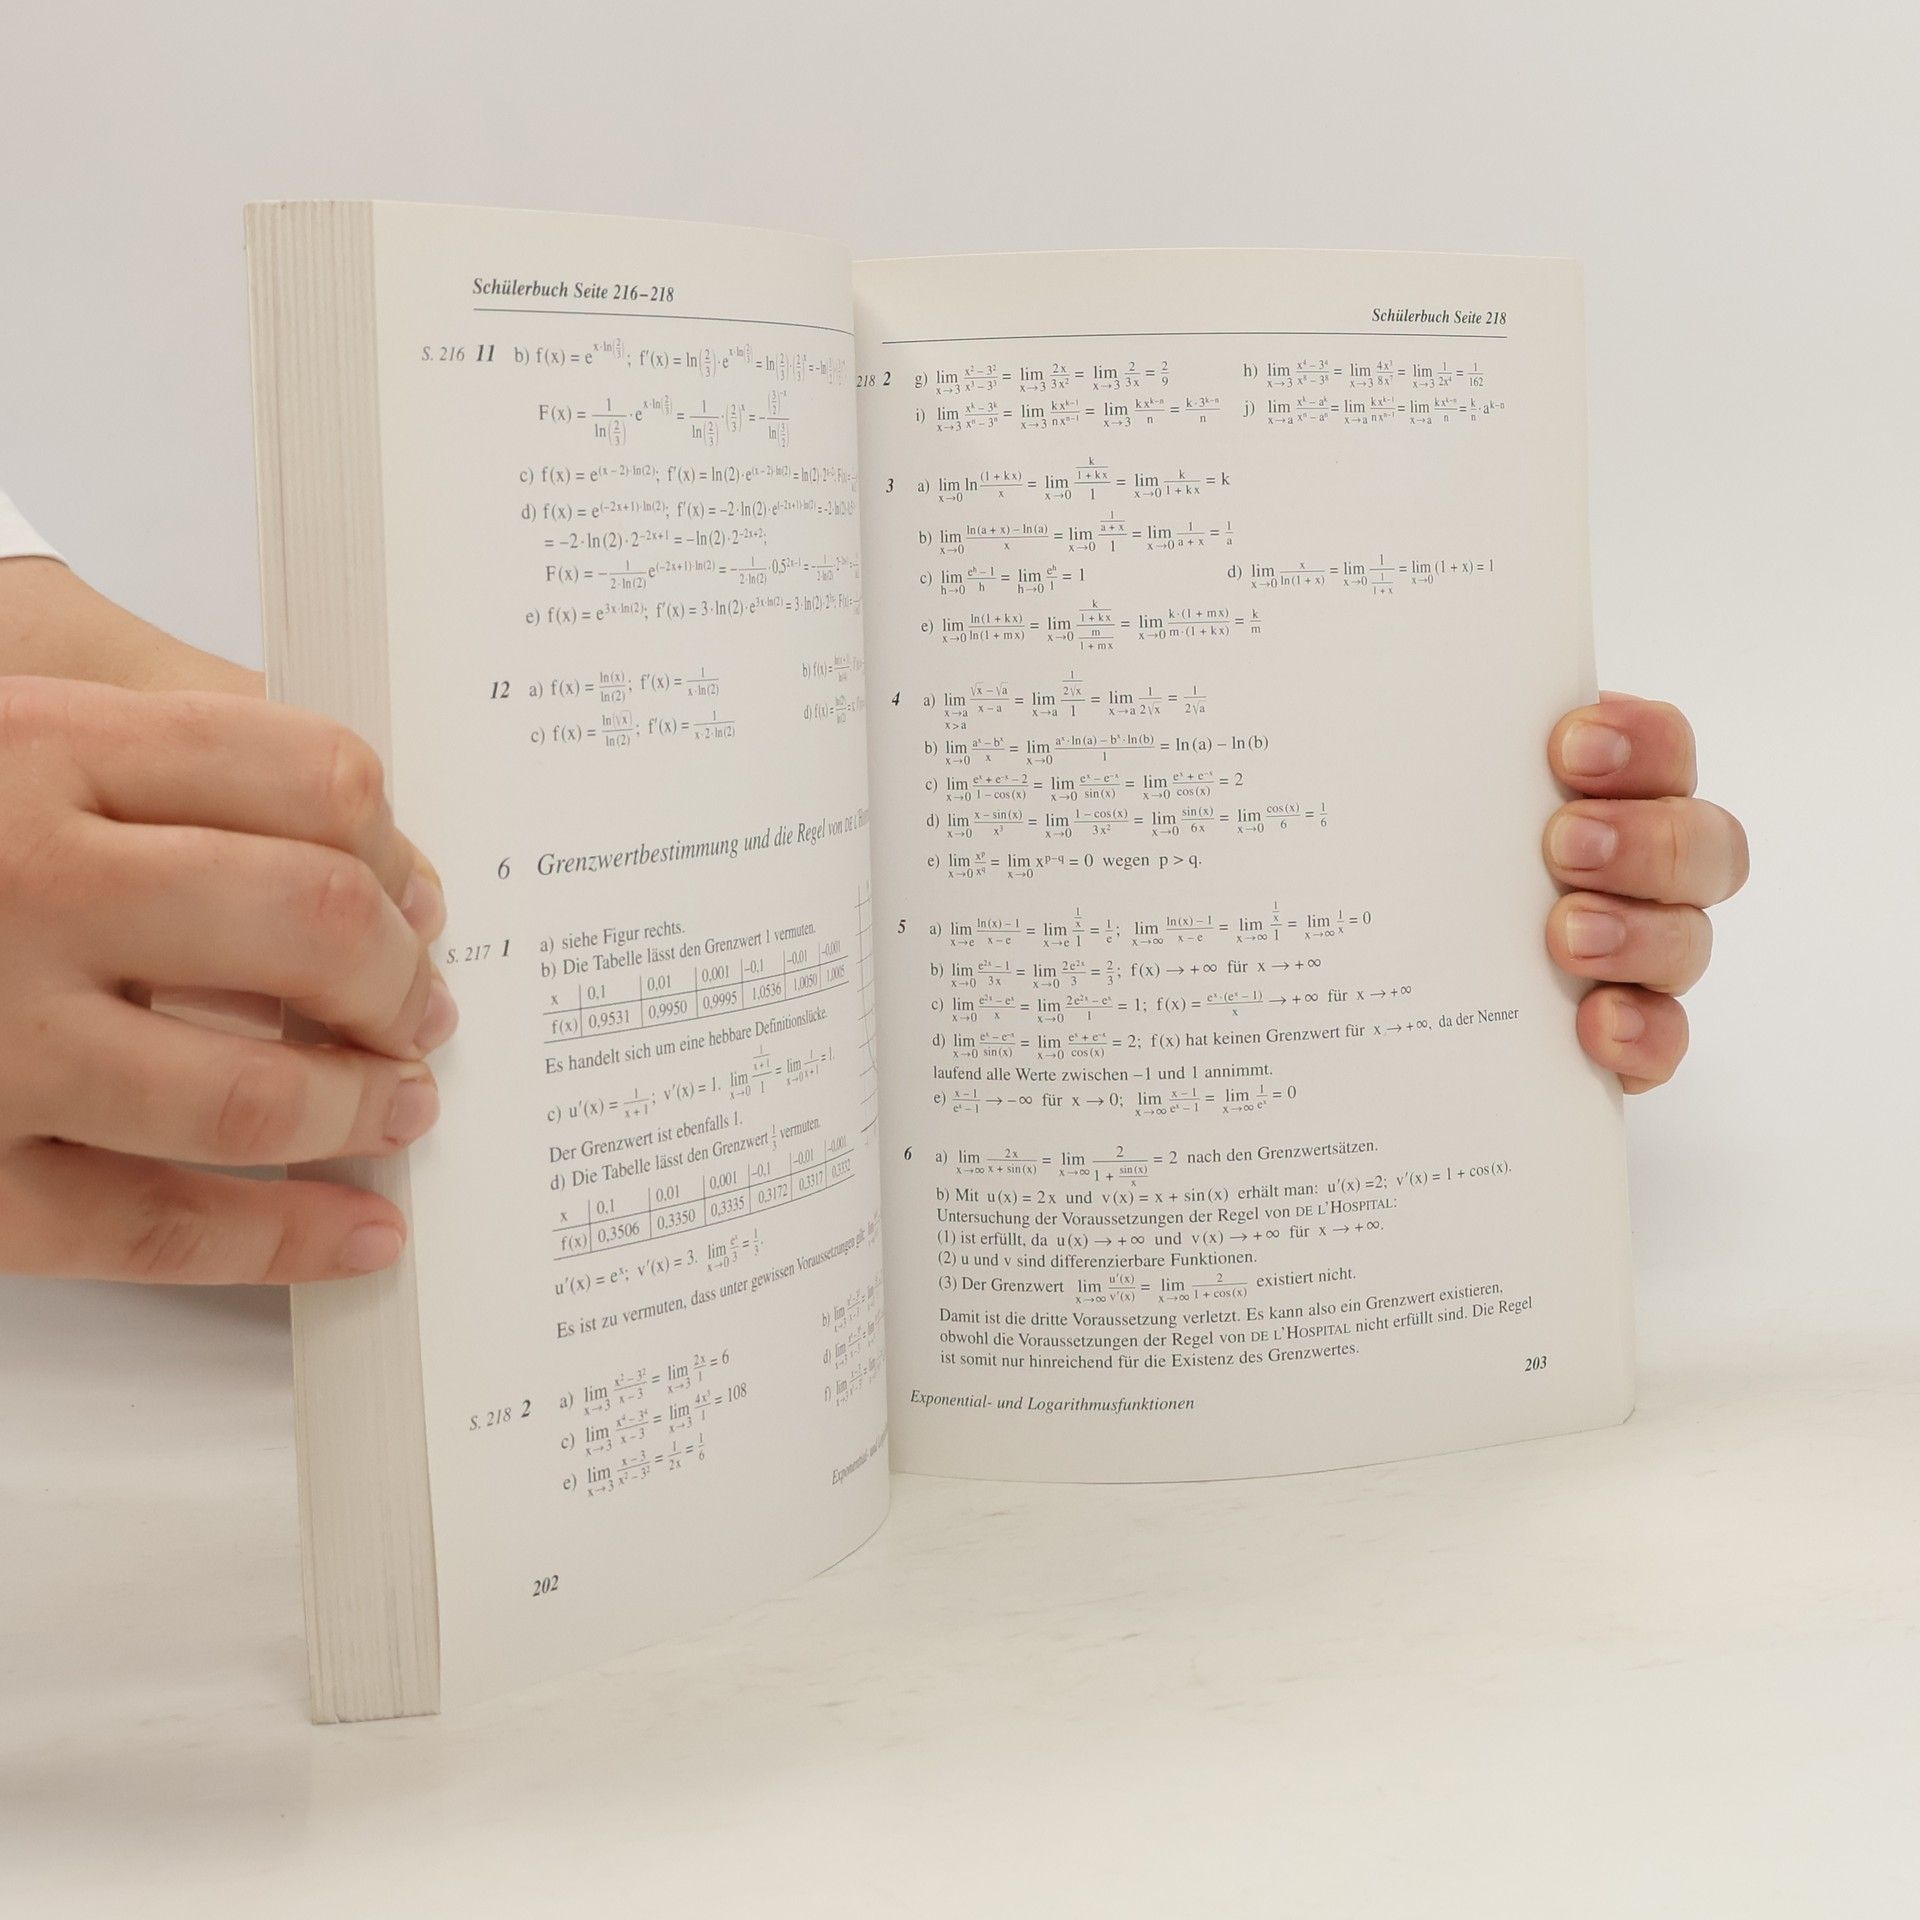 Schülerbuch Seite 216–218
S. 216 11 b) f(x) = e^(x·ln(2/3)); f'(x) = ln(2/3)·e^(x·ln(2/3)) = ln(2/3)·(2/3)^x
F(x) = 1/ln(2/3) · e^(x·ln(2/3)) = 1/ln(2/3) · (2/3)^x = −(3/2)^(−x)/ln(3/2)
c) f(x) = e^((x−2)·ln(2)); f'(x) = ln(2)·e^((x−2)·ln(2)) = ln(2)·2^(x−2);
d) f(x) = e^((−2x+1)·ln(2)); f'(x) = −2·ln(2)·e^((−2x+1)·ln(2))
= −2·ln(2)·2^(−2x+1) = −ln(2)·2^(−2x+2);
F(x) = −1/(2·ln(2)) e^((−2x+1)·ln(2)) = −1/(2·ln(2)) · 0,5^(2x−1)
e) f(x) = e^(3x·ln(2)); f'(x) = 3·ln(2)·e^(3x·ln(2)) = 3·ln(2)·2^(3x);
12 a) f(x) = ln(x)/ln(2); f'(x) = 1/(x·ln(2)) b) f(x) =
c) f(x) = ln(√x)/ln(2); f'(x) = 1/(x·2·ln(2)) d) f(x) =
6 Grenzwertbestimmung und die Regel von DE L'
S. 217 1 a) siehe Figur rechts.
b) Die Tabelle lässt den Grenzwert 1 vermuten.
x | 0,1 | 0,01 | 0,001 | −0,1 | −0,01 | −0,001
f(x) | 0,9531 | 0,9950 | 0,9995 | 1,0536 | 1,0050 | 1,0005
Es handelt sich um eine hebbare Definitionslücke.
c) u'(x) = 1/(x+1); v'(x) = 1. lim x→0 (1/(x+1))/1 = lim x→0 1/(x+1) = 1.
Der Grenzwert ist ebenfalls 1.
d) Die Tabelle lässt den Grenzwert 1/3 vermuten.
x | 0,1 | 0,01 | 0,001 | −0,1 | −0,01 | −0,001
f(x) | 0,3506 | 0,3350 | 0,3335 | 0,3172 | 0,3317 | 0,3332
u'(x) = e^x; v'(x) = 3. lim x→0 e^x/3 = 1/3.
Es ist zu vermuten, dass unter gewissen Voraussetzungen gilt: lim
S. 218 2 a) lim x→3 (x²−3²)/(x−3) = lim x→3 2x/1 = 6 b) lim
c) lim x→3 (x⁴−3⁴)/(x−3) = lim x→3 4x³/1 = 108 d) lim
e) lim x→3 (x−3)/(x²−3²) = 1/2x = 1/6 f) lim
202
Schülerbuch Seite 218
218 2 g) lim x→3 (x²−3²)/(x³−3³) = lim x→3 2x/3x² = lim x→3 2/3x = 2/9 h) lim x→3 (x⁴−3⁴)/(x⁸−3⁸) = lim x→3 4x³/8x⁷ = lim x→3 1/2x⁴ = 1/162
i) lim x→3 (x^k−3^k)/(x^n−3^n) = lim x→3 kx^(k−1)/nx^(n−1) = lim x→3 kx^(k−n)/n = k·3^(k−n)/n j) lim x→a (x^k−a^k)/(x^n−a^n) = lim x→a kx^(k−1)/nx^(n−1) = lim x→a kx^(k−n)/n = k/n · a^(k−n)
3 a) lim x→0 ln (1+kx)/x = lim x→0 (k/(1+kx))/1 = lim x→0 k/(1+kx) = k
b) lim x→0 (ln(a+x) − ln(a))/x = lim x→0 (1/(a+x))/1 = lim x→0 1/(a+x) = 1/a
c) lim h→0 (e^h−1)/h = lim h→0 e^h/1 = 1 d) lim x→0 x/ln(1+x) = lim x→0 1/(1/(1+x)) = lim x→0 (1+x) = 1
e) lim x→0 ln(1+kx)/ln(1+mx) = lim x→0 (k/(1+kx))/(m/(1+mx)) = lim x→0 k·(1+mx)/m·(1+kx) = k/m
4 a) lim x→a x>a (√x−√a)/(x−a) = lim x→a (1/2√x)/1 = lim x→a 1/2√x = 1/2√a
b) lim x→0 (a^x−b^x)/x = lim x→0 (a^x·ln(a) − b^x·ln(b))/1 = ln(a) − ln(b)
c) lim x→0 (e^x+e^(−x)−2)/(1−cos(x)) = lim x→0 (e^x−e^(−x))/sin(x) = lim x→0 (e^x+e^(−x))/cos(x) = 2
d) lim x→0 (x−sin(x))/x³ = lim x→0 (1−cos(x))/3x² = lim x→0 sin(x)/6x = lim x→0 cos(x)/6 = 1/6
e) lim x→0 x^p/x^q = lim x→0 x^(p−q) = 0 wegen p > q.
5 a) lim x→e (ln(x)−1)/(x−e) = lim x→e (1/x)/1 = 1/e; lim x→∞ (ln(x)−1)/(x−e) = lim x→∞ (1/x)/1 = lim x→∞ 1/x = 0
b) lim x→0 (e^(2x)−1)/3x = lim x→0 2e^(2x)/3 = 2/3; f(x) → +∞ für x → +∞
c) lim x→0 (e^(2x)−e^x)/x = lim x→0 (2e^(2x)−e^x)/1 = 1; f(x) = e^x·(e^x−1)/x → +∞ für x → +∞
d) lim x→0 (e^x−e^(−x))/sin(x) = lim x→0 (e^x+e^(−x))/cos(x) = 2; f(x) hat keinen Grenzwert für x → +∞, da der Nenner
laufend alle Werte zwischen −1 und 1 annimmt.
e) (x−1)/(e^x−1) → −∞ für x → 0; lim x→∞ (x−1)/(e^x−1) = lim x→∞ 1/e^x = 0
6 a) lim x→∞ 2x/(x+sin(x)) = lim x→∞ 2/(1+sin(x)/x) = 2 nach den Grenzwertsätzen.
b) Mit u(x) = 2x und v(x) = x + sin(x) erhält man: u'(x) = 2; v'(x) = 1 + cos(x).
Untersuchung der Voraussetzungen der Regel von DE L'HOSPITAL:
(1) ist erfüllt, da u(x) → +∞ und v(x) → +∞ für x → +∞.
(2) u und v sind differenzierbare Funktionen.
(3) Der Grenzwert lim x→∞ u'(x)/v'(x) = lim x→∞ 2/(1+cos(x)) existiert nicht.
Damit ist die dritte Voraussetzung verletzt. Es kann also ein Grenzwert existieren,
obwohl die Voraussetzungen der Regel von DE L'HOSPITAL nicht erfüllt sind. Die Regel
ist somit nur hinreichend für die Existenz des Grenzwertes.
203
Exponential- und Logarithmusfunktionen